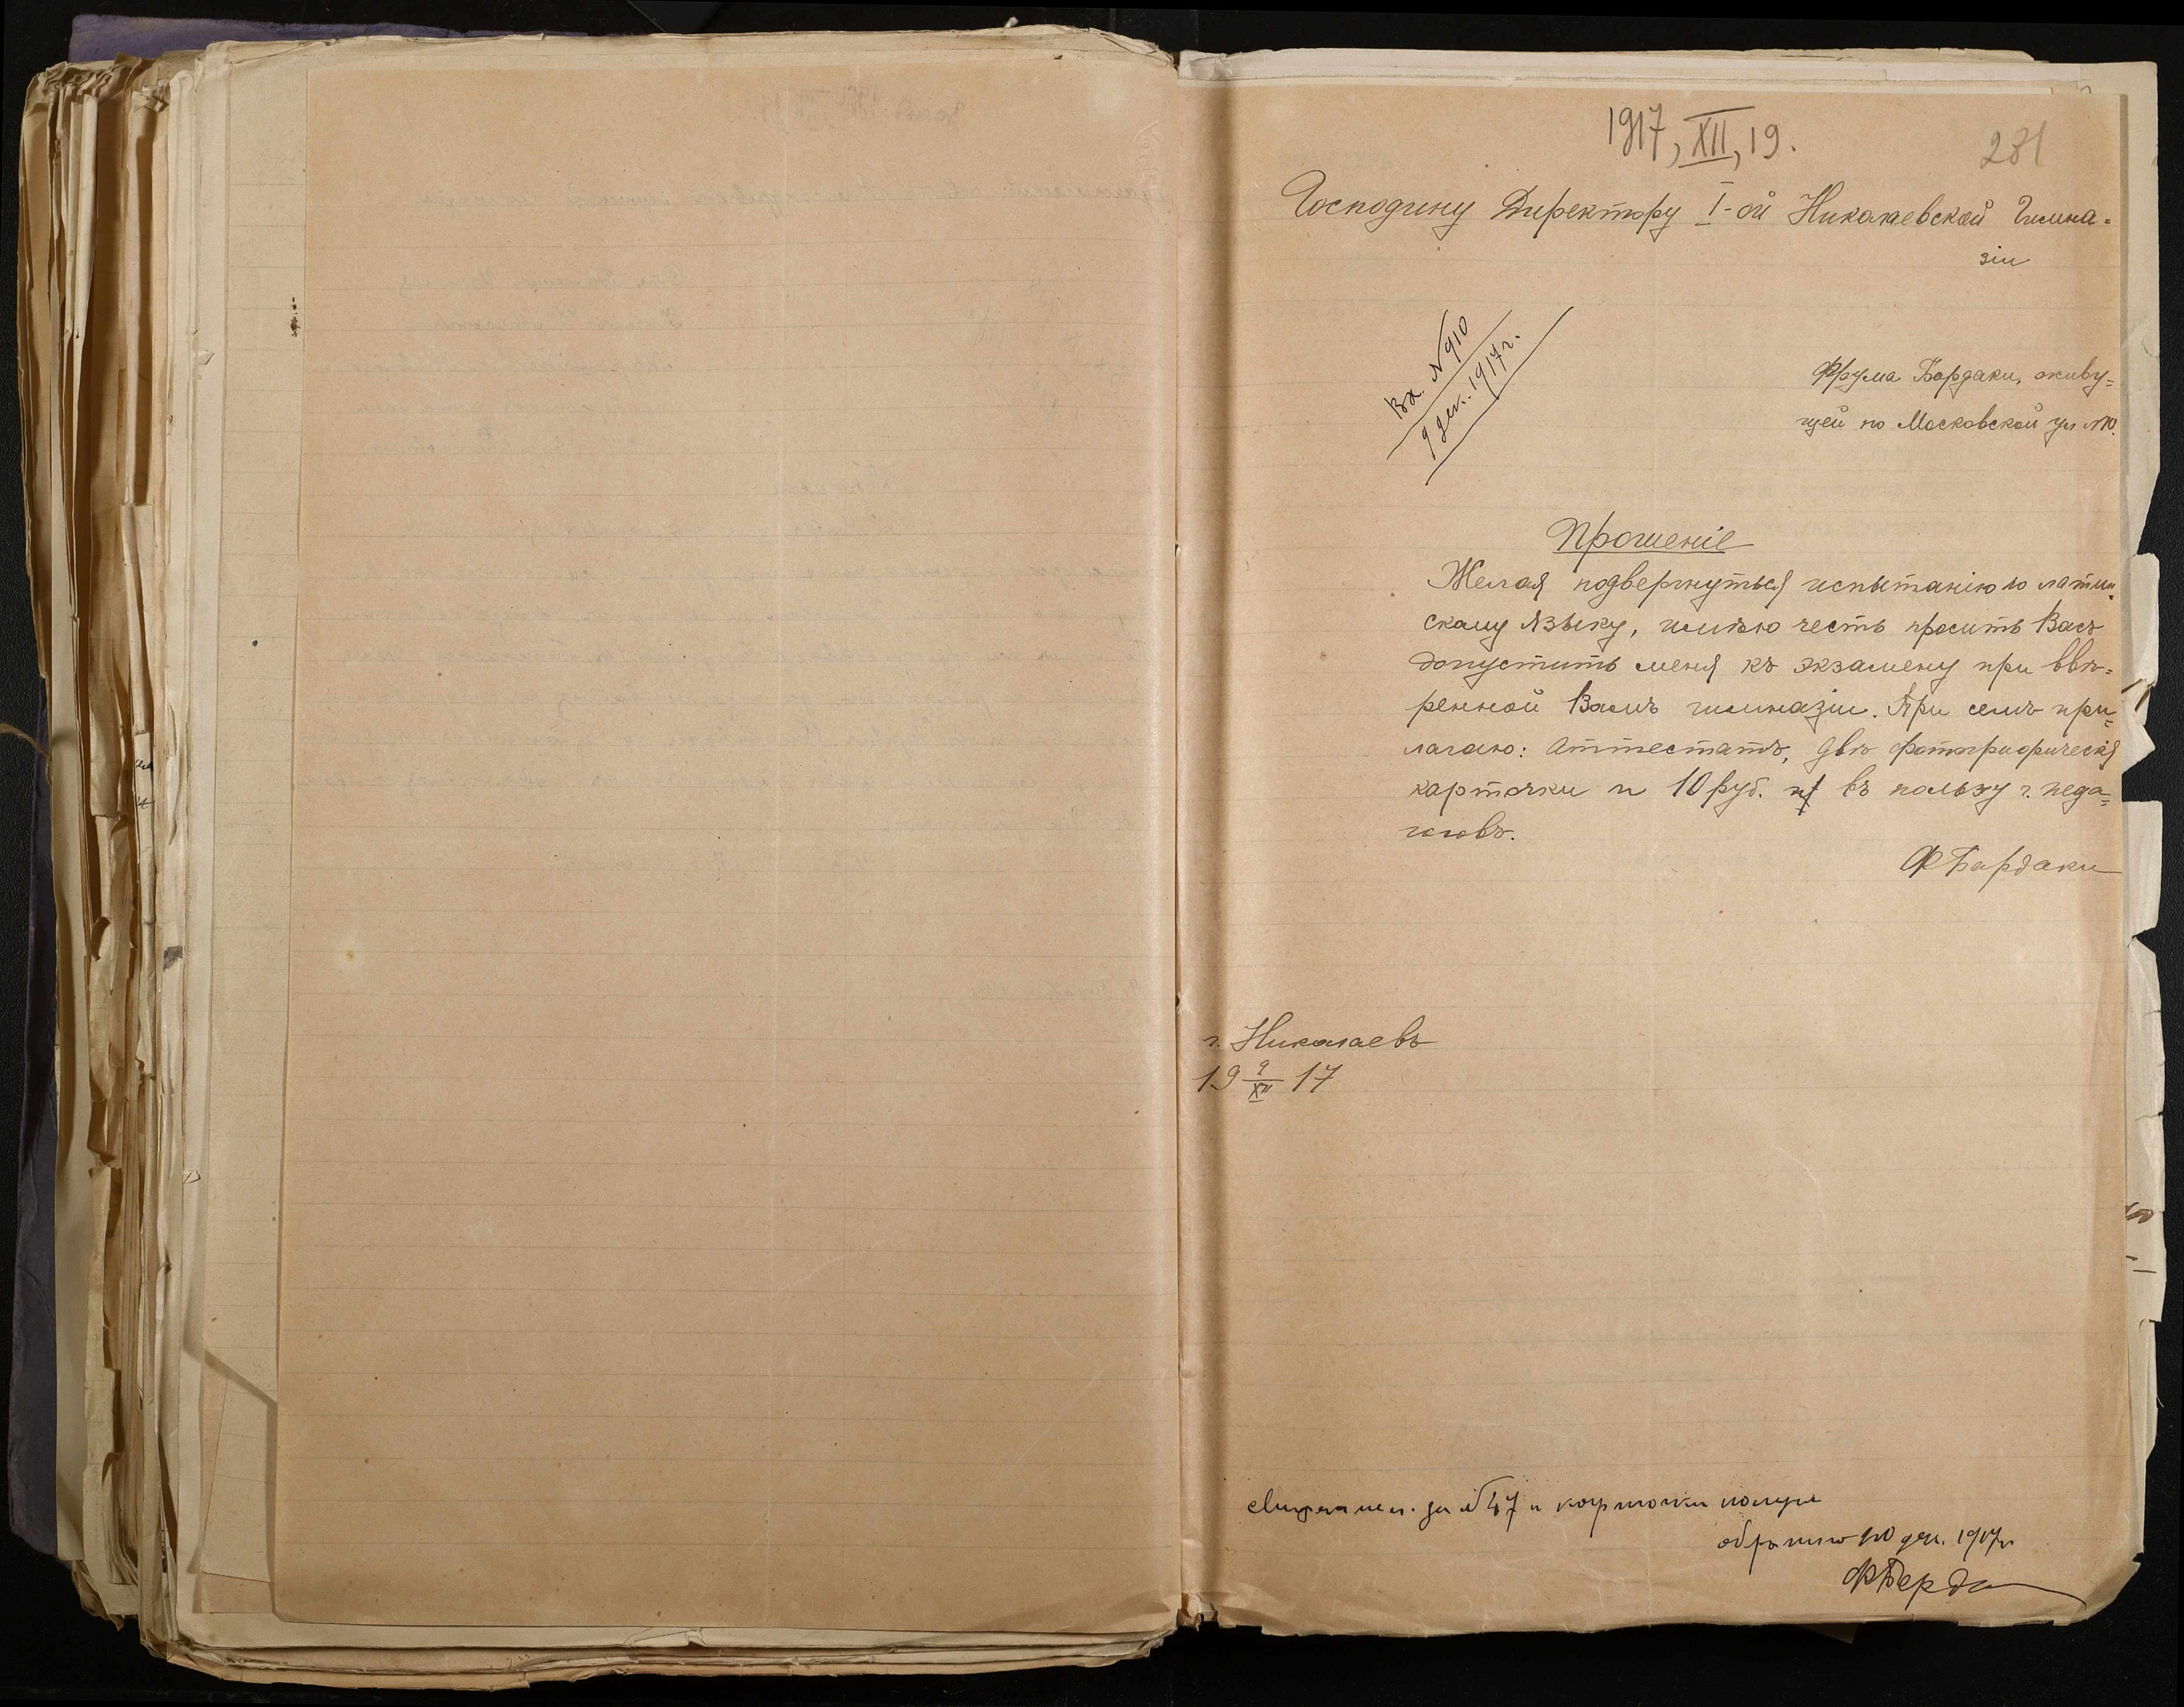 1917, XII, 19.
231
Господину Директору I-ой Николаевской Гимна=
зіи
Вх. №910
9 дек. 1917 г.
Фрума Бардаки, живу=
щей по Московской ул №10.
Прошеніе
Желая подвергнуться испытанію по латин=
скому языку, имѣю честь просить Васъ
допустить меня къ экзамену при ввѣ=
ренной Вамъ гимназіи. При семъ при=
лагаю: Аттестатъ, двѣ фотографическія
карточки и 10 руб. въ пользу г. педа=
гоговъ.
ФБардаки
г. Николаевъ
19 9/XII 17
за №47 и карточки получ
обратно 20 дек. 1917 г.